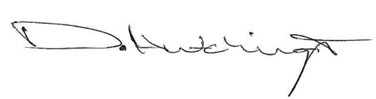 D. Hutchings